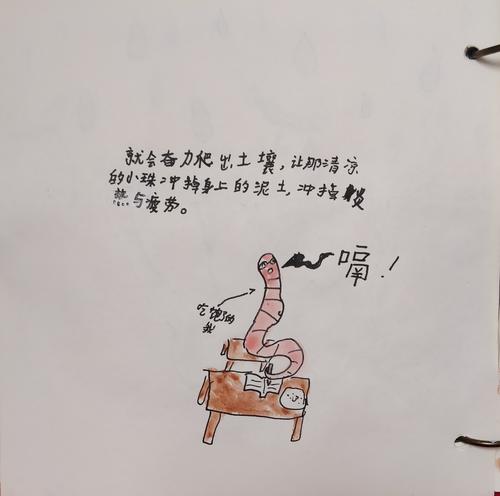 就会奋力爬出土壤，让那清凉
的小珠冲掉身上的泥土，冲掉炎
热与疲劳。
嗝！
吃饱了的
我